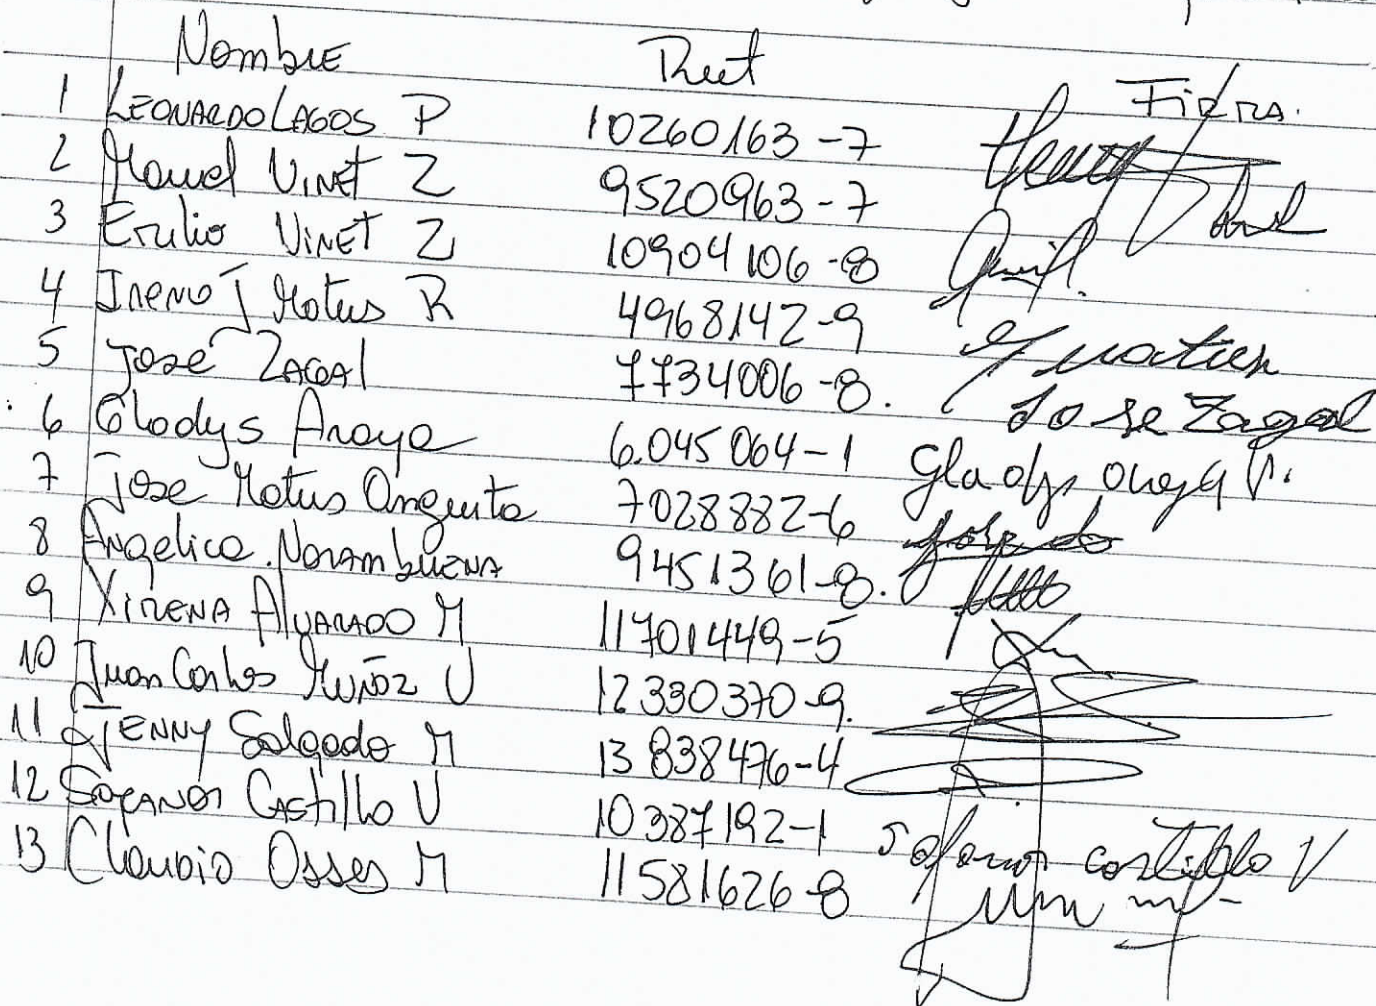 Nombre Rut Firma.
1 LEONARDO LAGOS P 10260163-7
2 Manuel VINET Z 9520963-7
3 Emilio VINET Z 10904106-8
4 Ireno J Matus R 4968142-9
5 José ZAGAL 7734006-8. Jose Zagal
6 Gladys Araya 6.045064-1 Gladys
7 Jose Matus Anguita 7028882-6
8 Angelica Norambuena 9451361-8.
9 XIMENA ALVARADO M 11701449-5
10 Juan Carlos MUÑOZ V 12330370-9.
11 JENNY Salgado M 13838476-4
12 CASTILLO V 10387192-1 castillo V
13 Claudio Osses M 11581626-8